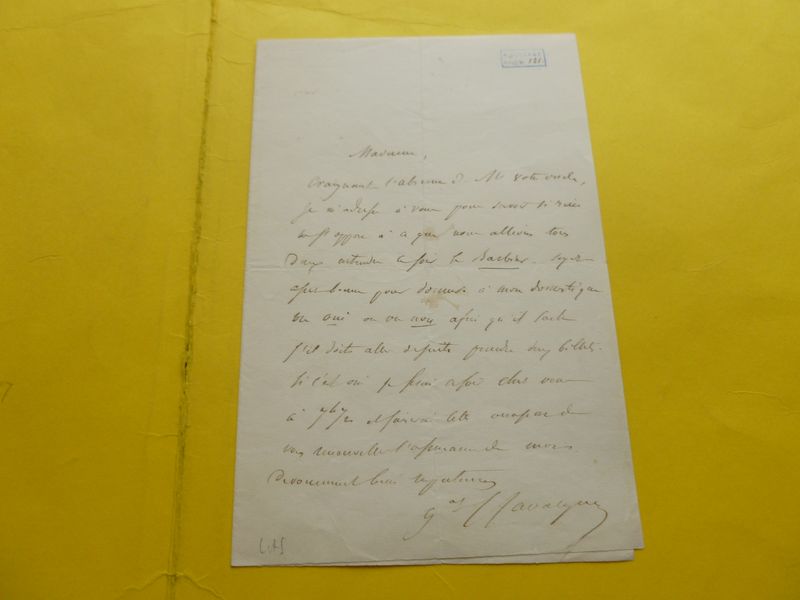 121.
Madame,
Craignant l'absence de Mr votre oncle,
je m'adresse à vous pour savoir si rien
ne s'oppose à ce que nous allions tous
Deux entendre ce soir le Barbier. Soyez
assez bonne pour donner à mon domestique
un oui ou un non afin qu'il sache
s'il doit aller de suite prendre les billets.
Si c'est oui je serai ce soir chez vous
à 7h 1/2 et saisirai cette occasion de
vous renouveler l'assurance de mon
Devouement bien respectueux
Gal Cavaignac
LAS